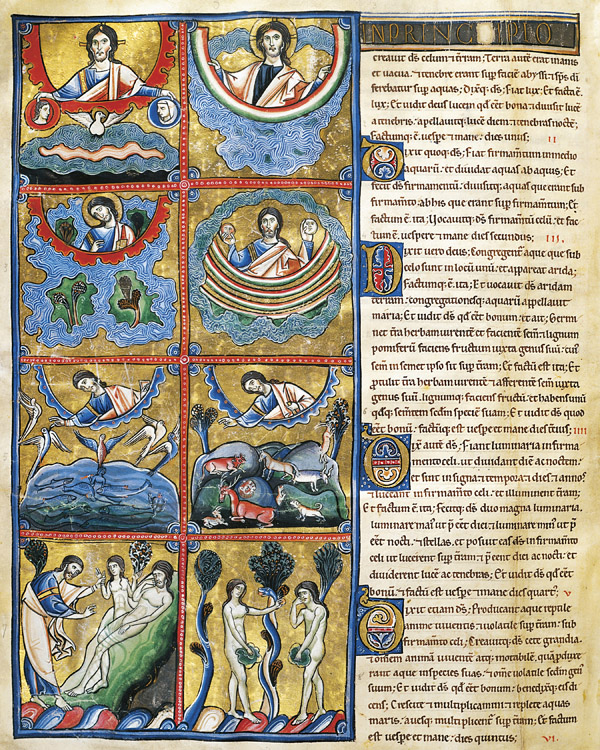 IN PRINCIPIO
creavit dē celum & t̄ram; Terra autē erat inanis
et vacua. & tenebre erant sup̄ faciē abyssi. & sp̄s dī
ferebatur sup̄ aquas; Dixitq; ds̄. Fiat lux; Et facta ē
lux; Et vidit deus lucem qđ eēt bona; & divisit lucē
a tenebris. appellavitq; lucē diem. & tenebras nocte;
Factumq; ē vesp̄e & mane dies unus; II
Dixit quoq; ds̄. Fiat firmam̄tum in medio
aquarū. et dividat aquas ab aquis; Et
fecit ds̄ firmamentū. divisitq; aquas que erant sub
firmam̄to. ab his que erant sup̄ firmam̄tum; Et
factum ē ita; Vocavitq; ds̄ firmam̄tū celū; et fac
tum ē. vespere & mane dies secundus; III.
Dixit vero deus; Congregent̄ aque que sub
celo sunt in locū unū. et appareat arida;
Factumq; ē ita; Et vocavit ds̄ aridam
terram. congregationesq; aquarū appellavit
maria; Et vidit ds̄ qđ eēt bonum. et ait; Germi
net t̄ra herbam virente et faciente sem̄. & lignum
pomiferū faciens fructum iuxta genus suū. cui'
sem̄ in semet ipso sit sup̄ t̄ram; Et factū est ita; Et
p̄tulit t̄ra herbam virente & afferente sem̄ iuxta
genus suū. lignumq; faciens fructū. et habens unū
qđq; semtem sedm̄ specie suam; Et vidit ds̄ quod
eēt bonū. factumq; est vesp̄e et mane dies t̄tius; IIII
Dixit autē ds̄; Fiant luminaria in firma
mento celi. ut dividant diē ac noctem.
et sint in signa & tempora. et dies & annos.
& luceant in firmam̄to celi. et illuminent t̄ram;
Et factum ē ita; Fecitq; ds̄ duo magna luminaria.
luminare mai' ut p̄ eēt diei. & luminare min' ut p̄
eēt nocti. & stellas. et posuit eas ds̄ in firmam̄to
celi ut lucerent sup̄ t̄ram; & p̄ eent diei ac nocti. et
dividerent lucē ac tenebras; Et vidit ds̄ qđ eēt
bonū. & factū est vesp̄e & mane dies quart'; V
Dixit etiam ds̄; Producant aque reptile
anime viventis. & volatile sup̄ t̄ram sub
firmam̄to celi; Creavitq; ds̄ cete grandia.
& omem animā viventē atq; motabilē. quā p̄duxe
rant aque in species suas; & om̄e volatile sedm̄ gen'
suum; Et vidit ds̄ qđ eēt bonum. benedixq; eis di
cens; Crescite et multiplicamini & replete aquas
maris. avesq; multiplicent̄ sup̄ t̄ram; Et factum
est vesp̄e & mane. dies quintus; VI.